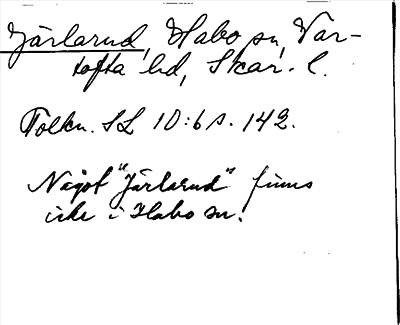 Järlarud, Habo sn, Var-
tofta hd, Skar. l.
Folkn. SL 10:6 s. 142.
Något "Järlarud" finns
icke i Habo sn.